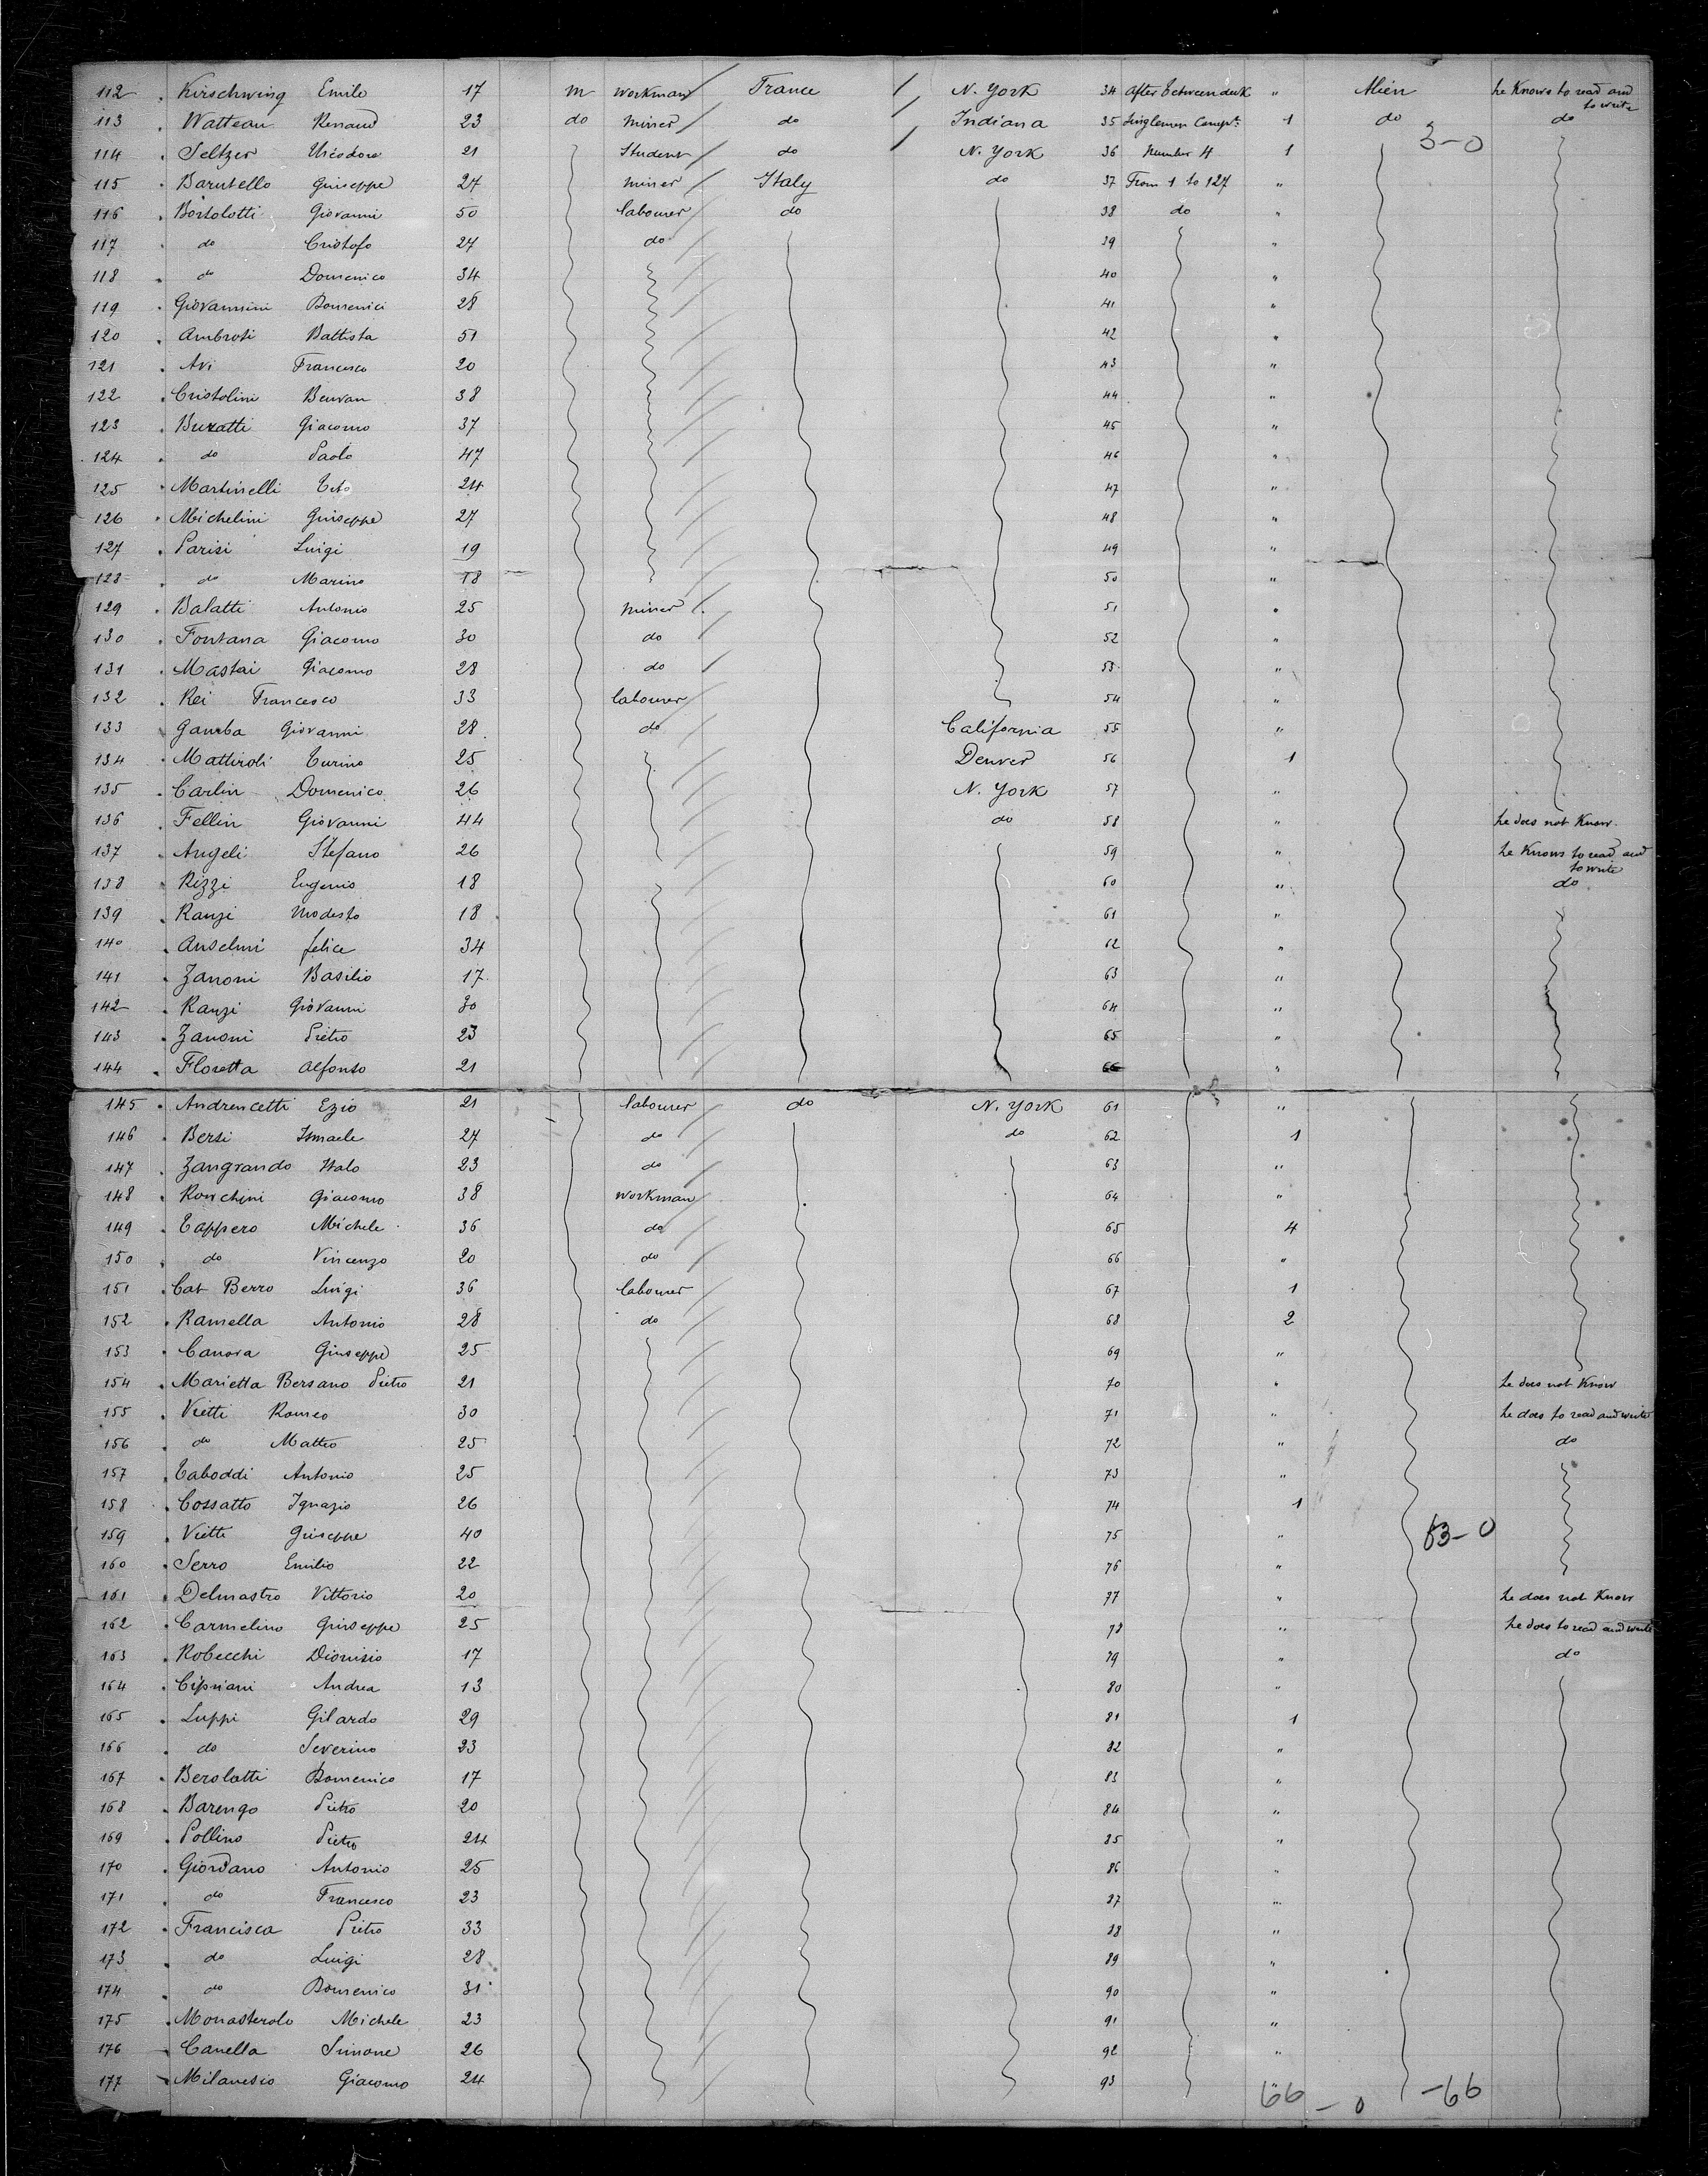 112 Kirschwing Emile 17 m workman France N. York 34 after between deck " Alien he Knows to read and to write
113 Watteau Renaud 23 do miner do Indiana 35 Singlemen Compt. 1 do do
3-0
114 Seltzer Théodore 21 Student do N. York 36 Number 4 1
115 Barutello Giuseppe 27 miner Italy do 37 From 1 to 127 "
116 Bortolotti Giovanni 50 labourer do 38 do "
117 do Cristofo 27 do 39 "
118 do Domenico 34 40 "
119 Giovannini Domenici 28 41 "
120 Ambrosi Battista 51 42 "
121 Avi Francesco 20 43 "
122 Cristolini 38 44 "
123 Buzatti Giacomo 37 45 "
124 do Paolo 47 46 "
125 Martinelli Tito 24 47 "
126 Michelini Giuseppe 27 48 "
127 Parisi Luigi 19 49 "
128 do Marino 18 50 "
129 Balatti Antonio 25 miner 51 "
130 Fontana Giacomo 30 do 52 "
131 Mastai Giacomo 28 do 53 "
132 Rei Francesco 33 labourer 54 "
133 Gamba Giovanni 28 do California 55 "
134 Mattiroli Turino 25 Denver 56 1
135 Carlin Domenico 26 N. York 57 "
136 Fellin Giovanni 44 do 58 " he does not Know.
137 Angeli Stefano 26 59 " he Knows to read and to write
138 Rizzi Eugenio 18 60 " do
139 Ranzi Modesto 18 61 "
140 Anselmi felice 34 62 "
141 Zanoni Basilio 17 63 "
142 Ranzi Giovanni 30 64 "
143 Zanoni Pietro 23 65 "
144 Floretta Alfonso 21 66 "
145 Andrencetti Ezio 21 labourer do N. York 61 "
146 Bersi Ismaele 27 do do 62 1
147 Zangrando Italo 23 do 63 "
148 Ronchini Giacomo 38 workman 64 "
149 Tappero Michele 36 do 65 4
150 do Vincenzo 20 do 66 "
151 Cat Berro Luigi 36 labourer 67 1
152 Ramella Antonio 28 do 68 2
153 Canova Giuseppe 25 69 "
154 Marietta Bersano Pietro 21 70 " he does not Know
155 Vietti Romeo 30 71 " he does to read and write
156 do Matteo 25 72 " do
157 Taboddi Antonio 25 73 "
158 Cossatto Ignazio 26 74 1
159 Vietti Giuseppe 40 75 " 63-0
160 Serro Emilio 22 76 "
161 Delmastro Vittorio 20 77 " he does not Know
162 Carmelino Giuseppe 25 78 " he does to read and write
163 Robecchi Dionisio 17 79 " do
164 Cipriani Andrea 13 80 "
165 Luppi Gilardo 29 81 1
166 do Severino 23 82 "
167 Berolatti Domenico 17 83 "
168 Barengo Pietro 20 84 "
169 Pollino Pietro 24 85 "
170 Giordano Antonio 25 86 "
171 do Francesco 23 87 "
172 Francisca Pietro 33 88 "
173 do Luigi 28 89 "
174 do Domenico 31 90 "
175 Monasterolo Michele 23 91 "
176 Canella Simone 26 92 "
177 Milanesio Giacomo 24 93
66 - 0 -66